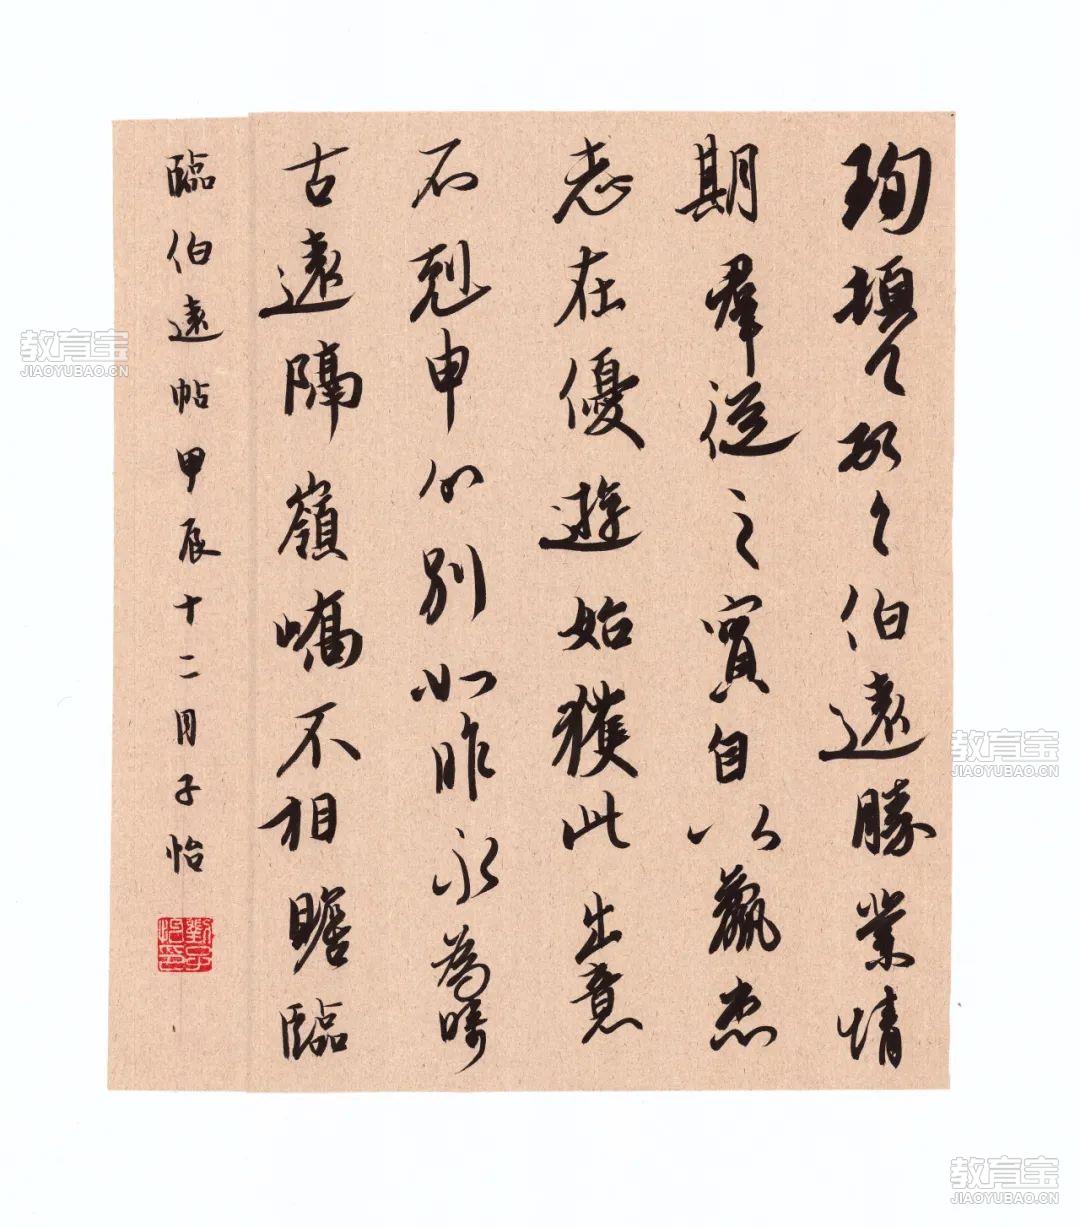 珣頓首頓首伯遠勝業情
期群從之寶自以羸患
志在優遊始獲此出意
不剋申分別如昨永為疇
古遠隔嶺嶠不相瞻臨
臨伯遠帖甲辰十二月子怡
教育宝
JIAOYUBAO.CN
教育宝
JIAOYUBAO.CN
教育宝
JIAOYUBAO.CN